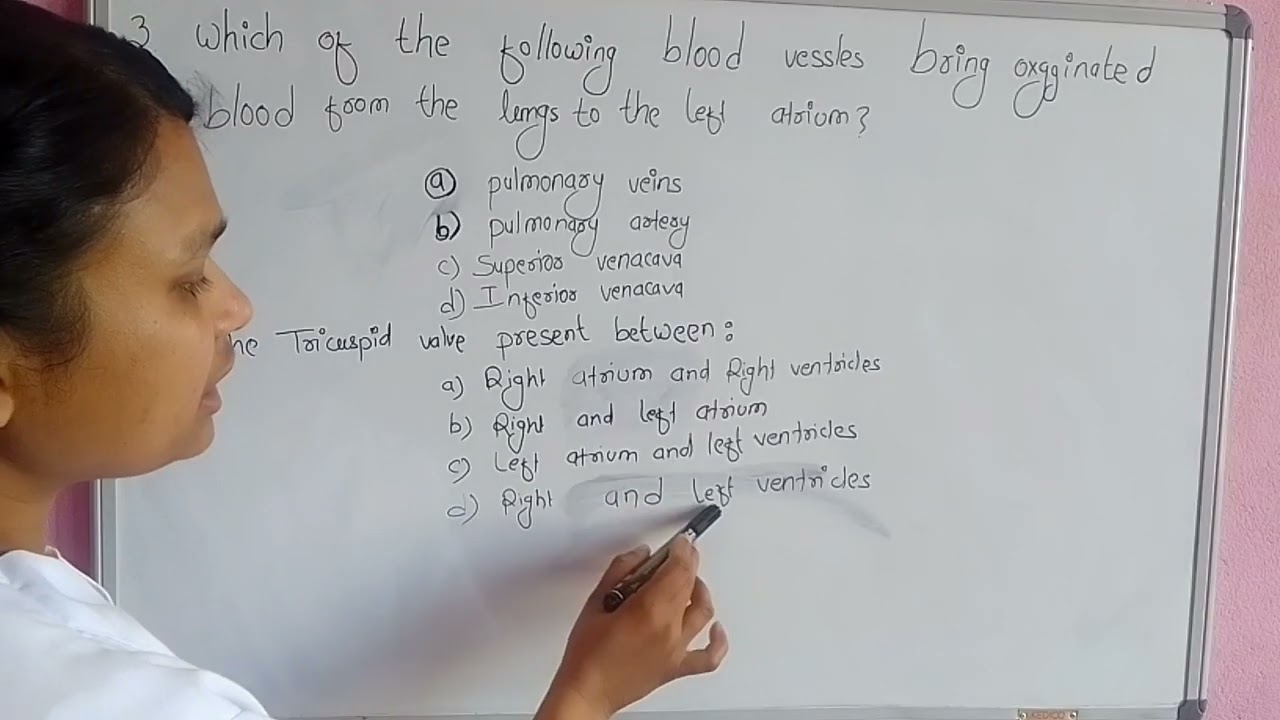 3. Which of the following blood vessles bring oxgginated
blood from the lungs to the left atrium?
a) pulmonary veins
b) pulmonary artery
c) Superior venacava
d) Inferior venacava
he Tricuspid valve present between:
a) Right atrium and Right ventricles
b) Right and left atrium
c) Left atrium and left ventricles
d) Right and left ventricles